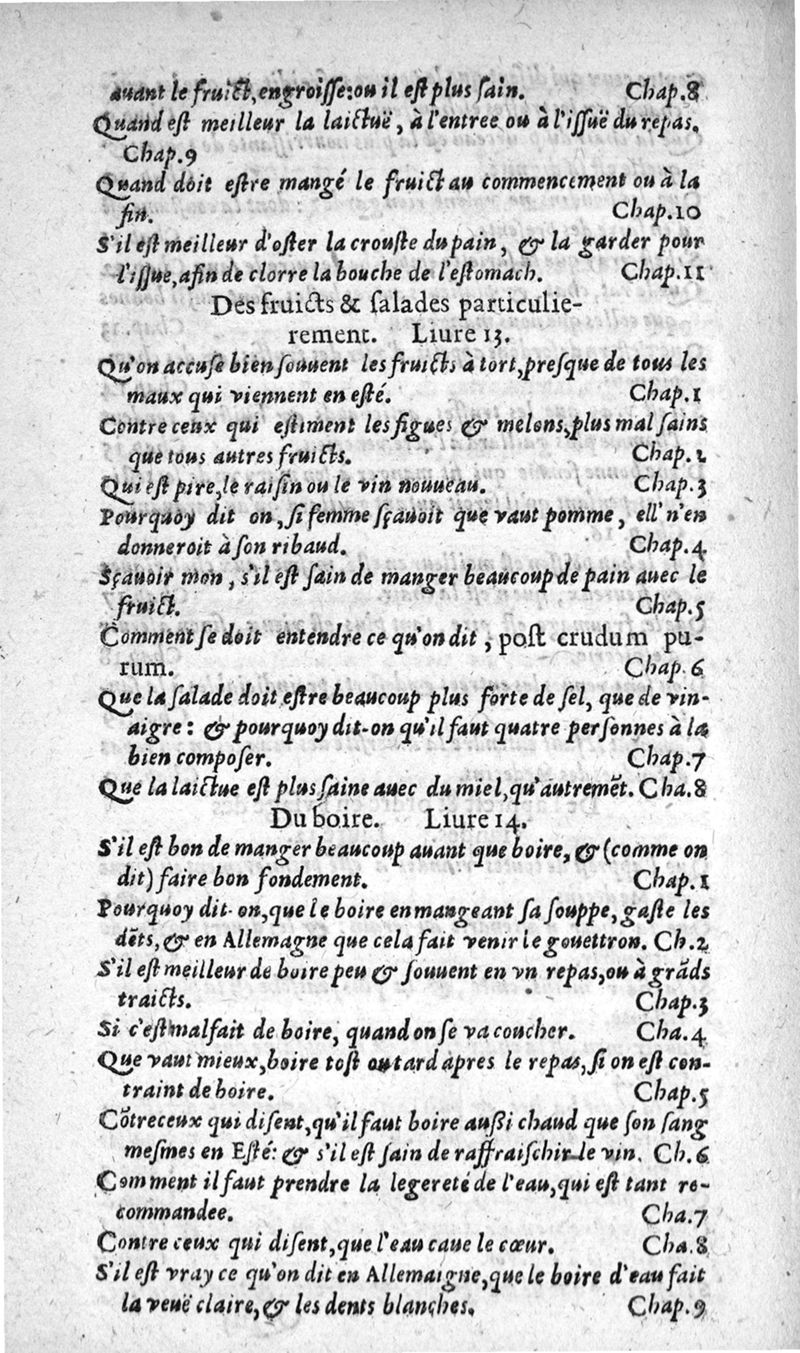 auant le fruict, engroisse: ou il est plus sain. Chap.8
Quand est meilleur la laictuë, à l'entree ou à l'issuë du repas.
Chap.9
Quand doit estre mangé le fruict au commencement ou à la
fin. Chap.10
S'il est meilleur d'oster la crouste du pain, & la garder pour
l'issue, afin de clorre la bouche de l'estomach. Chap.11
Des fruicts & salades particulie-
rement. Liure 13.
Qu'on accuse bien souuent les fruicts à tort, presque de tous les
maux qui viennent en esté. Chap.1
Contre ceux qui estiment les figues & melons, plus mal sains
que tous autres fruicts. Chap.2
Qui est pire, le raisin ou le vin nouueau. Chap.3
Pourquoy dit on, si femme sçauoit que vaut pomme, ell' n'en
donneroit à son ribaud. Chap.4
Sçauoir mon, s'il est sain de manger beaucoup de pain auec le
fruict. Chap.5
Comment se doit entendre ce qu'on dit, post crudum pu-
rum. Chap.6
Que la salade doit estre beaucoup plus forte de sel, que de vin-
aigre: & pourquoy dit-on qu'il faut quatre personnes à la
bien composer. Chap.7
Que la laictue est plus saine auec du miel, qu'autremẽt. Cha.8
Du boire. Liure 14.
S'il est bon de manger beaucoup auant que boire, & (comme on
dit) faire bon fondement. Chap.1
Pourquoy dit-on, que le boire en mangeant sa souppe, gaste les
dẽts, & en Allemagne que cela fait venir le gouettron. Ch.2
S'il est meilleur de boire peu & souuent en vn repas, ou à grãds
traicts. Chap.3
Si c'est malfait de boire, quand on se va coucher. Cha.4
Que vaut mieux, boire tost ou tard apres le repas, si on est con-
traint de boire. Chap.5
Cõtre ceux qui disent, qu'il faut boire aussi chaud que son sang
mesmes en Esté: & s'il est sain de raffraischir le vin. Ch.6
Comment il faut prendre la legereté de l'eau, qui est tant re-
commandee. Cha.7
Contre ceux qui disent, que l'eau caue le cœur. Cha.8
S'il est vray ce qu'on dit en Allemaigne, que le boire d'eau fait
la veuë claire, & les dents blanches. Chap.9